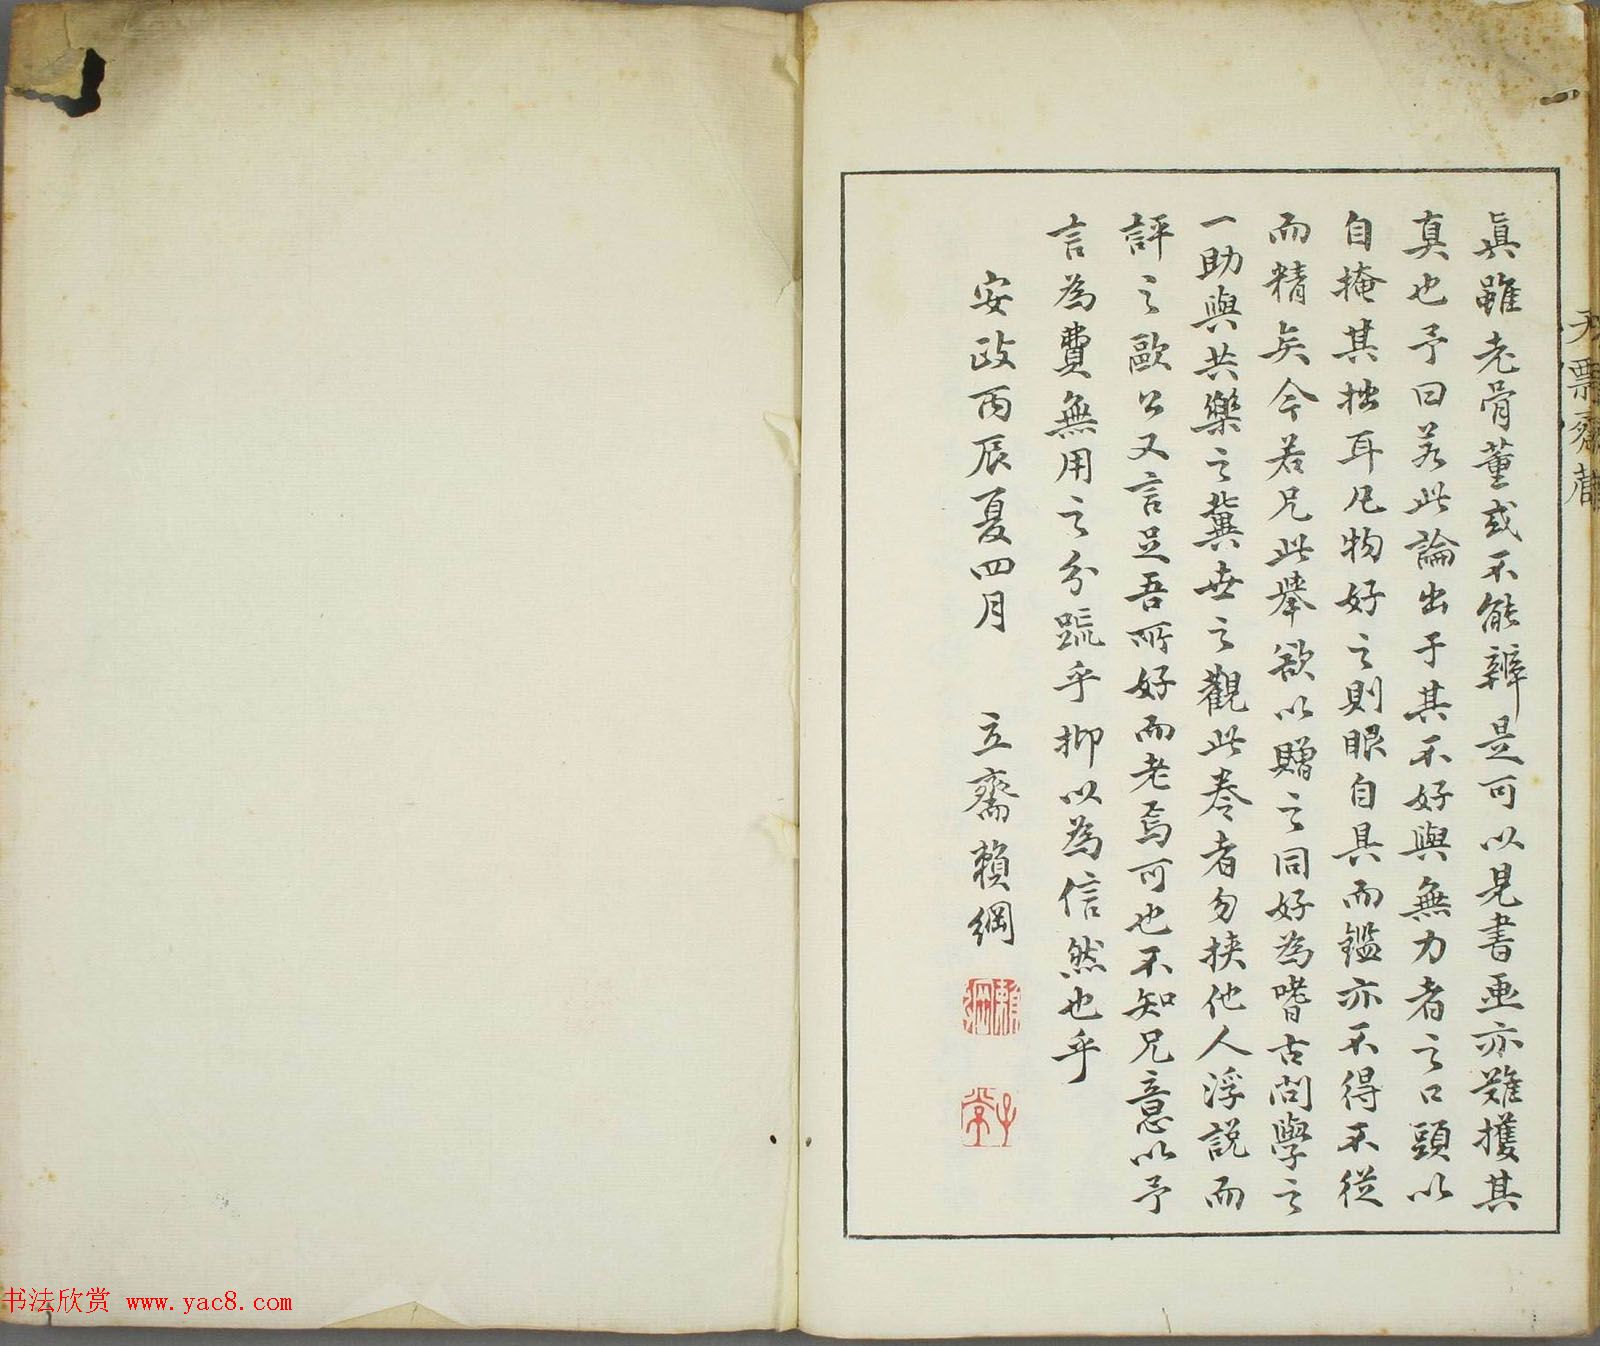 眞雖老骨董或不能辨是可以見書畫亦難獲其
真也予曰若此論出于其不好與無力者之口頭以
自掩其拙耳凡物好之則眼自具而鑑亦不得不從
而精矣今若兄此舉欲以贈之同好為嗜古問學之
一助與共樂之冀世之觀此卷者勿挾他人浮說而
評之歐公又言足吾所好而老焉可也不知兄意以予
言為費無用之分疏乎抑以為信然也乎
安政丙辰夏四月 立齋賴綱
子常
书法欣赏 www.yac8.com